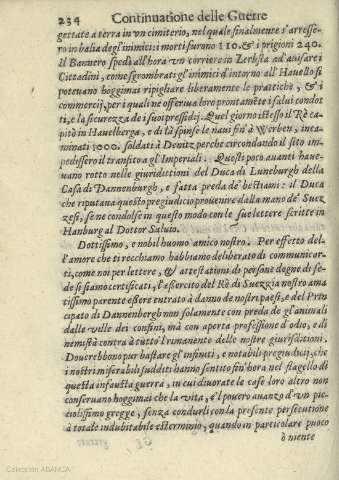 234 Continuatione delle Guerre
gettate a terra in vn cimiterio, nel quale finalmente s'arresse-
ro in balìa degl'inimici: morti furono 110. & i prigioni 240.
Il Bannero spedì all'hora vn corriere in Zerbsta ad auisare i
Cittadini, come sgombrati gl'inimici d'intorno all'Hauello si
poteuano hoggimai ripigliare liberamente le prattiche, & i
commercij, per i quali ne osseruaua loro prontamẽte i salui condot
ti, e la sicurezza de i suoi pressidij. Quel giorno istesso il Rè ca-
pitò in Hauelberga, e di là spinse le naui fin' à Werben, incami-
nati 1000. soldati à Denitz perche circondando il sito im-
pedissero il transito a gl'Imperiali. Questi poco auanti haue-
uano rotto nelle giuriditioni del Duca di Luneburgh della
Casa di Dannenburgh, e fatta preda de' bestiami: il Duca
che riputaua questo pregiudicio prouenire dalla mano de' Suez
zesi, se ne condolse in questo modo con le sue lettere scritte in
Hanburg al Dottor Saluio.
Dottissimo, e nobil huomo amico nostro. Per effetto del-
l'amore che ti recchiamo habbiamo deliberato di communicar-
ti, come noi per lettere, & attestationi di persone degne di fe-
de se siamo certificati, l'essercito del Rè di Suezzia nostro ama
tissimo parente essere entrato à danno de nostri paesi, e del Prin
cipato di Dannenbergh non solamente con preda de gl'animali
dalle ville dei confini, mà con aperta professione d'odio, e di
nemistà contra à tutto'l rimanente delle nostre giurisditioni.
Dourebbono pur bastare gl'infiniti, e notabili pregiudicij, che
i nostri miserabili sudditi hanno sentito fin'hora nel flagello di
questa infausta guerra, in cui diuorate le case loro altro non
conseruano hoggimai che la vita, e'l pouero auanzo d'vn pic-
ciolissimo gregge, senza condurli con la presente persecutione
à totale indubitabile esterminio, quando in particolare puoco
ò niente
Colección ABANCA